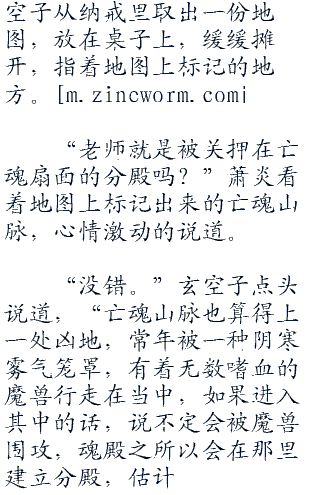 空子从纳戒里取出一份地
图，放在桌子上，缓缓摊
开，指着地图上标记的地
方。[m.zincworm.com]
“老师就是被关押在亡
魂扇面的分殿吗？”萧炎看
着地图上标记出来的亡魂山
脉，心情激动的说道。
“没错。”玄空子点头
说道，“亡魂山脉也算得上
一处凶地，常年被一种阴寒
雾气笼罩，有着无数嗜血的
魔兽行走在当中，如果进入
其中的话，说不定会被魔兽
围攻，魂殿之所以会在那里
建立分殿，估计